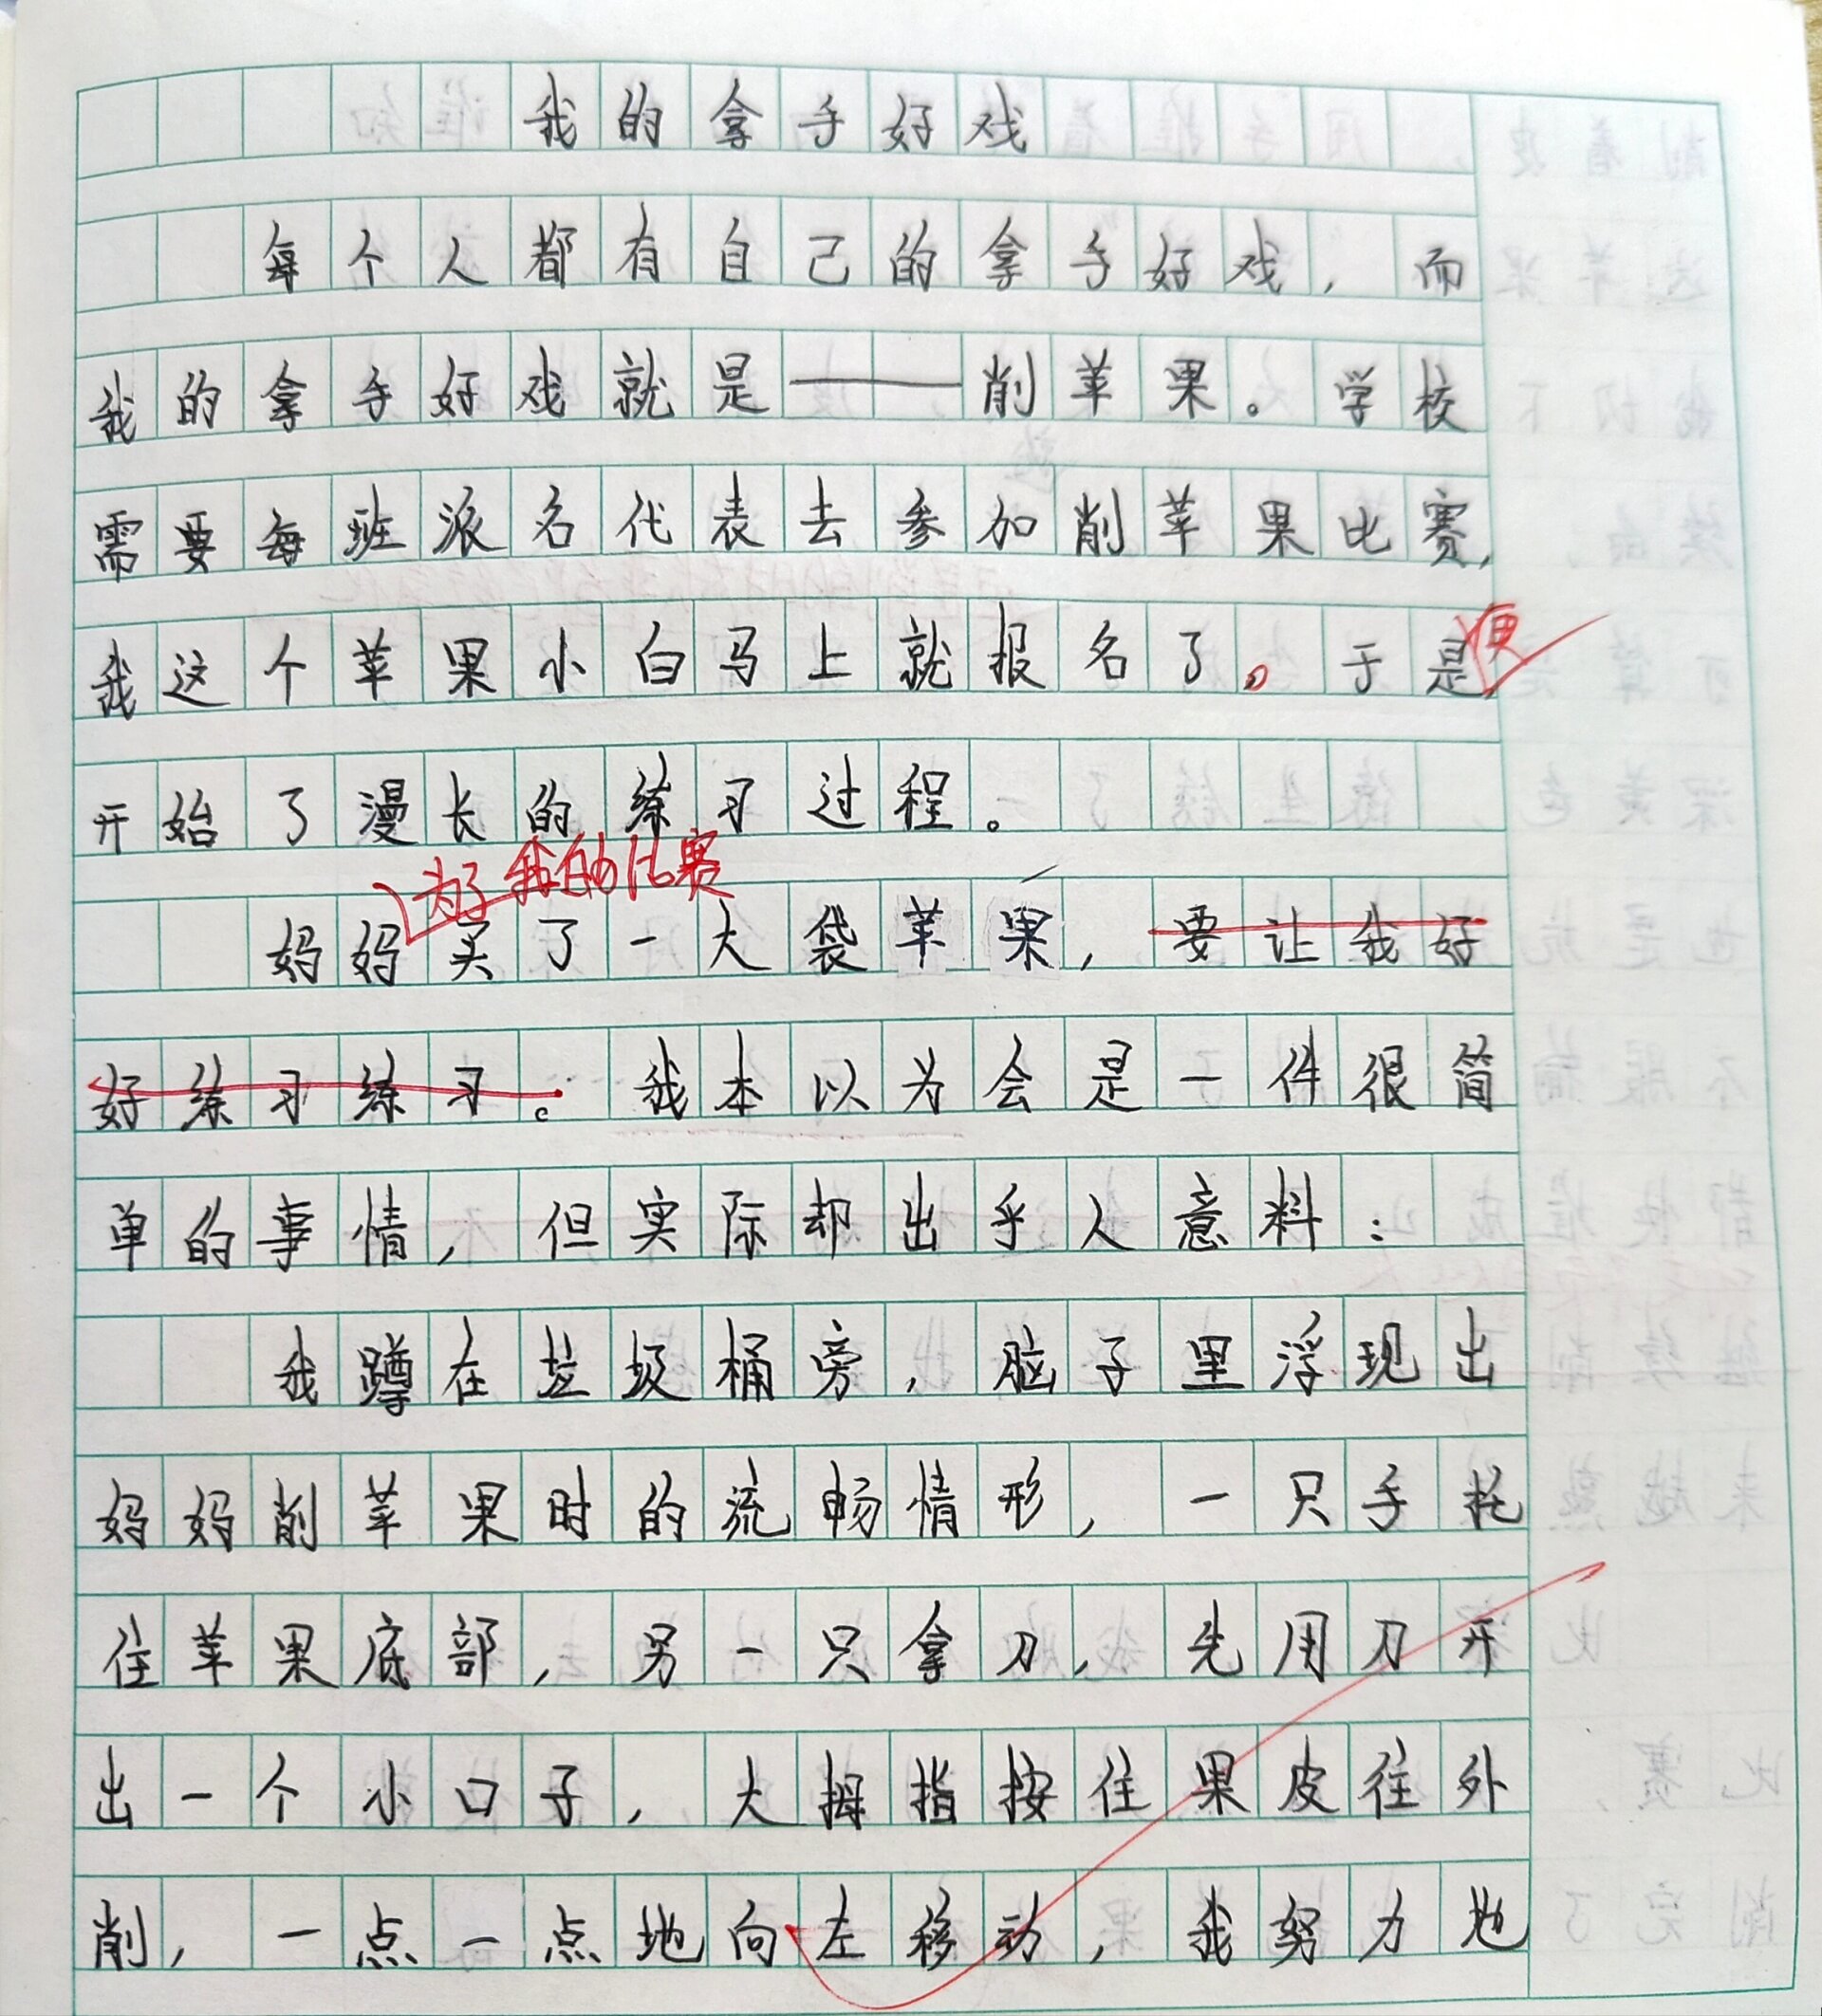 我的拿手好戏
每个人都有自己的拿手好戏，而
我的拿手好戏就是——削苹果。学校
需要每班派名代表去参加削苹果比赛，
我这个苹果小白马上就报名了。于是便
开始了漫长的练习过程。
为了我的比赛
妈妈买了一大袋苹果，要让我好
好练习练习。我本以为会是一件很简
单的事情，但实际却出乎人意料：
我蹲在垃圾桶旁，脑子里浮现出
妈妈削苹果时的流畅情形，一只手托
住苹果底部，另一只拿刀，先用刀开
出一个小口子，大拇指按住果皮往外
削，一点一点地向左移动，我努力地